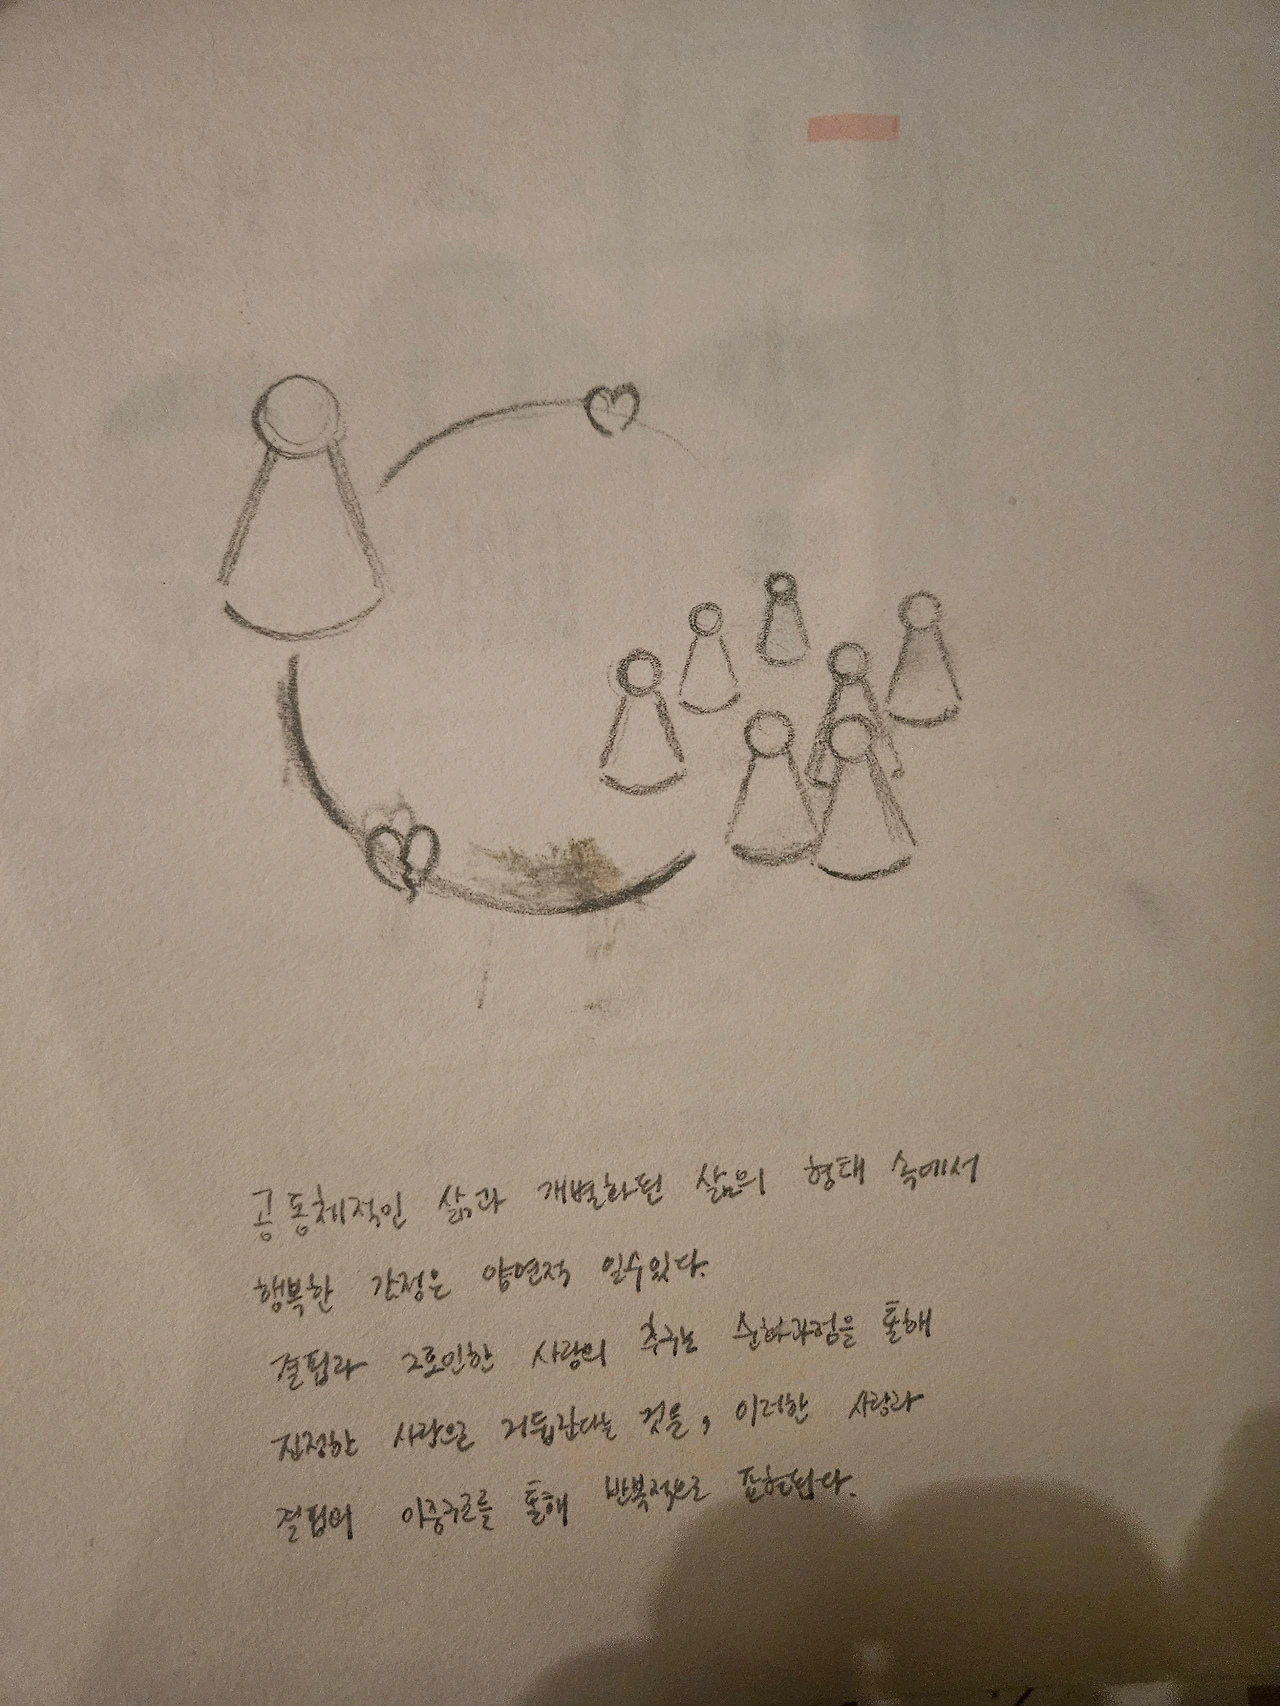 공동체적인 삶과 개별화된 삶의 형태 속에서
행복한 감정은 양면적 일수있다.
결핍과 그로인한 사랑의 추구는 순화과정을 통해
진정한 사랑으로 거듭난다는 것을, 이러한 사랑과
결핍의 이중구조를 통해 반복적으로 표현된다.